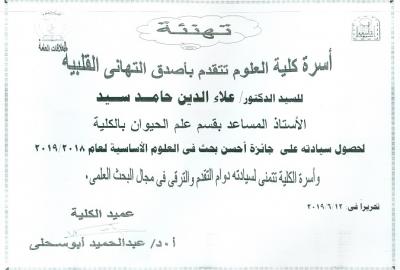 تهنئة
العلاقات العامة
أسرة كلية العلوم تتقدم بأصدق التهانى القلبية
للسيد الدكتور/ علاء الدين حامد سيد
الأستاذ المساعد بقسم علم الحيوان بالكلية
لحصول سيادته على جائزة أحسن بحث فى العلوم الأساسية لعام ٢٠١٩/٢٠١٨
وأسرة الكلية تتمنى لسيادته دوام التقدم والترقى فى مجال البحث العلمى،
تحريرا فى: ٢٠١٩/٦/١٢
عميد الكلية
أ.د/ عبدالحميد أبوسحلى